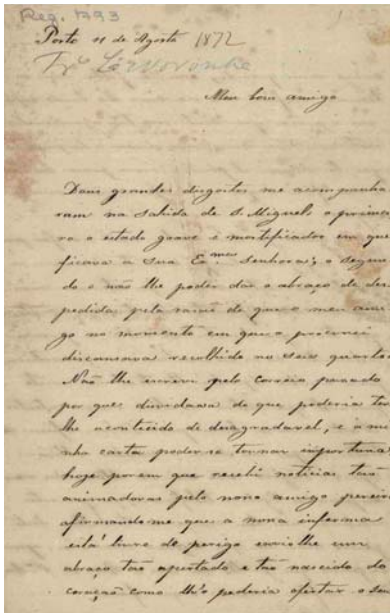 Reg. 1293
Porto 11 de Agosto 1872
Meu bom amigo
Dous grandes disgostos me acompanha
ram na sahida de S. Miguel, o primei
ro o estado grave e mortificador em que
ficava a sua Ex.ma Senhora; o segun
do o não lhe poder dar o abraço de des
pedida pela rasão de que o meu ami
go no momento em que o procurei
discansava recolhido no seu quarto
Não lhe escrevi pelo correio passado
por que duvidava do que poderia ter
lhe acontecido de desagradavel, e a mi
nha carta poder se tornar importuna
hoje porem que recebi noticias tão
animadoras pelo nosso amigo pereira
afirmando me que a nossa inferma
está livre de perigo envio lhe um
abraço tão apertado e tão nascido do
coração como lh'o poderia ofertar o seu